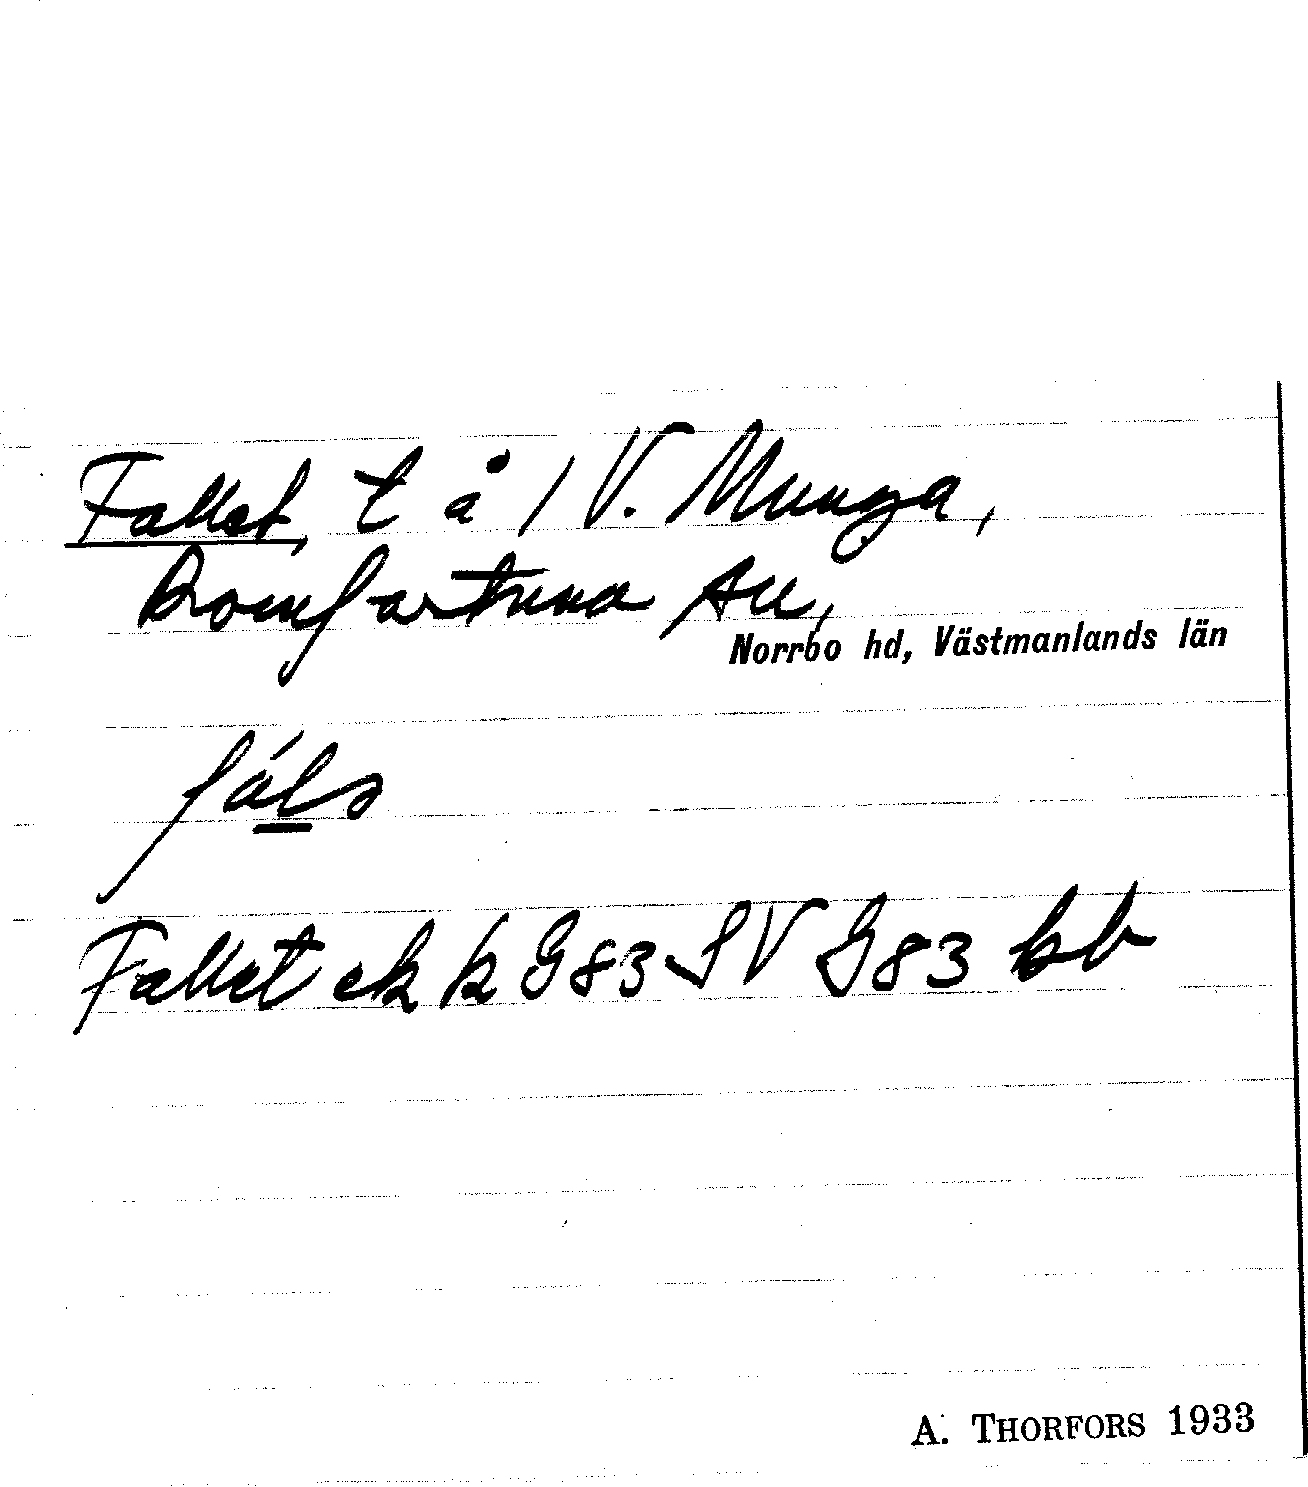 Fallet, t å 1 V. Munga,
Romfartuna sn,
Norrbo hd, Västmanlands län
fáls
Fallet ek k G83 SV G83 bb
A. THORFORS 1933